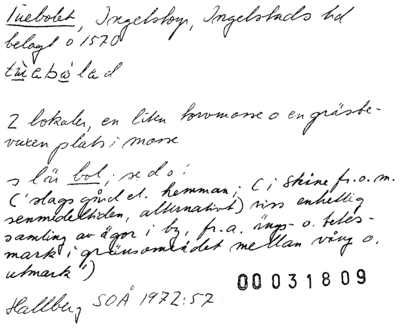 Tuebolet, Ingelstorp, Ingelstads hd
belagt o 1570
tùəbòləd
2 lokaler, en liten torvmosse o en gräsbe-
vuxen plats i mosse
s lån bol, se d o:
('slags gård el. hemman; (i Skåne fr.o.m.
senmedeltiden, alternativt) viss enhetlig
samling av ägor i by, fr.a. ängs- o. betes-
mark i gränsområdet mellan vång o.
utmark')
Hallberg SOÅ 1972:57
00031809